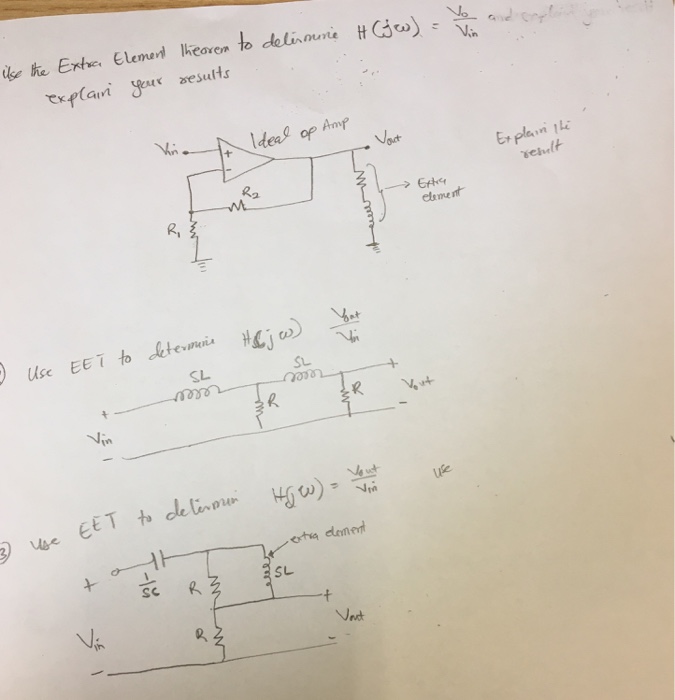 Use the Extra Element Theorem to determine H(jω) = Vo/Vin and explain your result
explain your results
Vin
+
-
Ideal op Amp
Vout
Explain the
result
R2
Extra
element
R1
Use EET to determine H(jω) Vout/Vin
SL
SL
+
R
R
+
Vout
-
Vin
-
3) Use EET to determin H(jω) = Vout/Vin
use
extra element
+
1/SC
R
SL
+
Vin
R
Vout
-
-